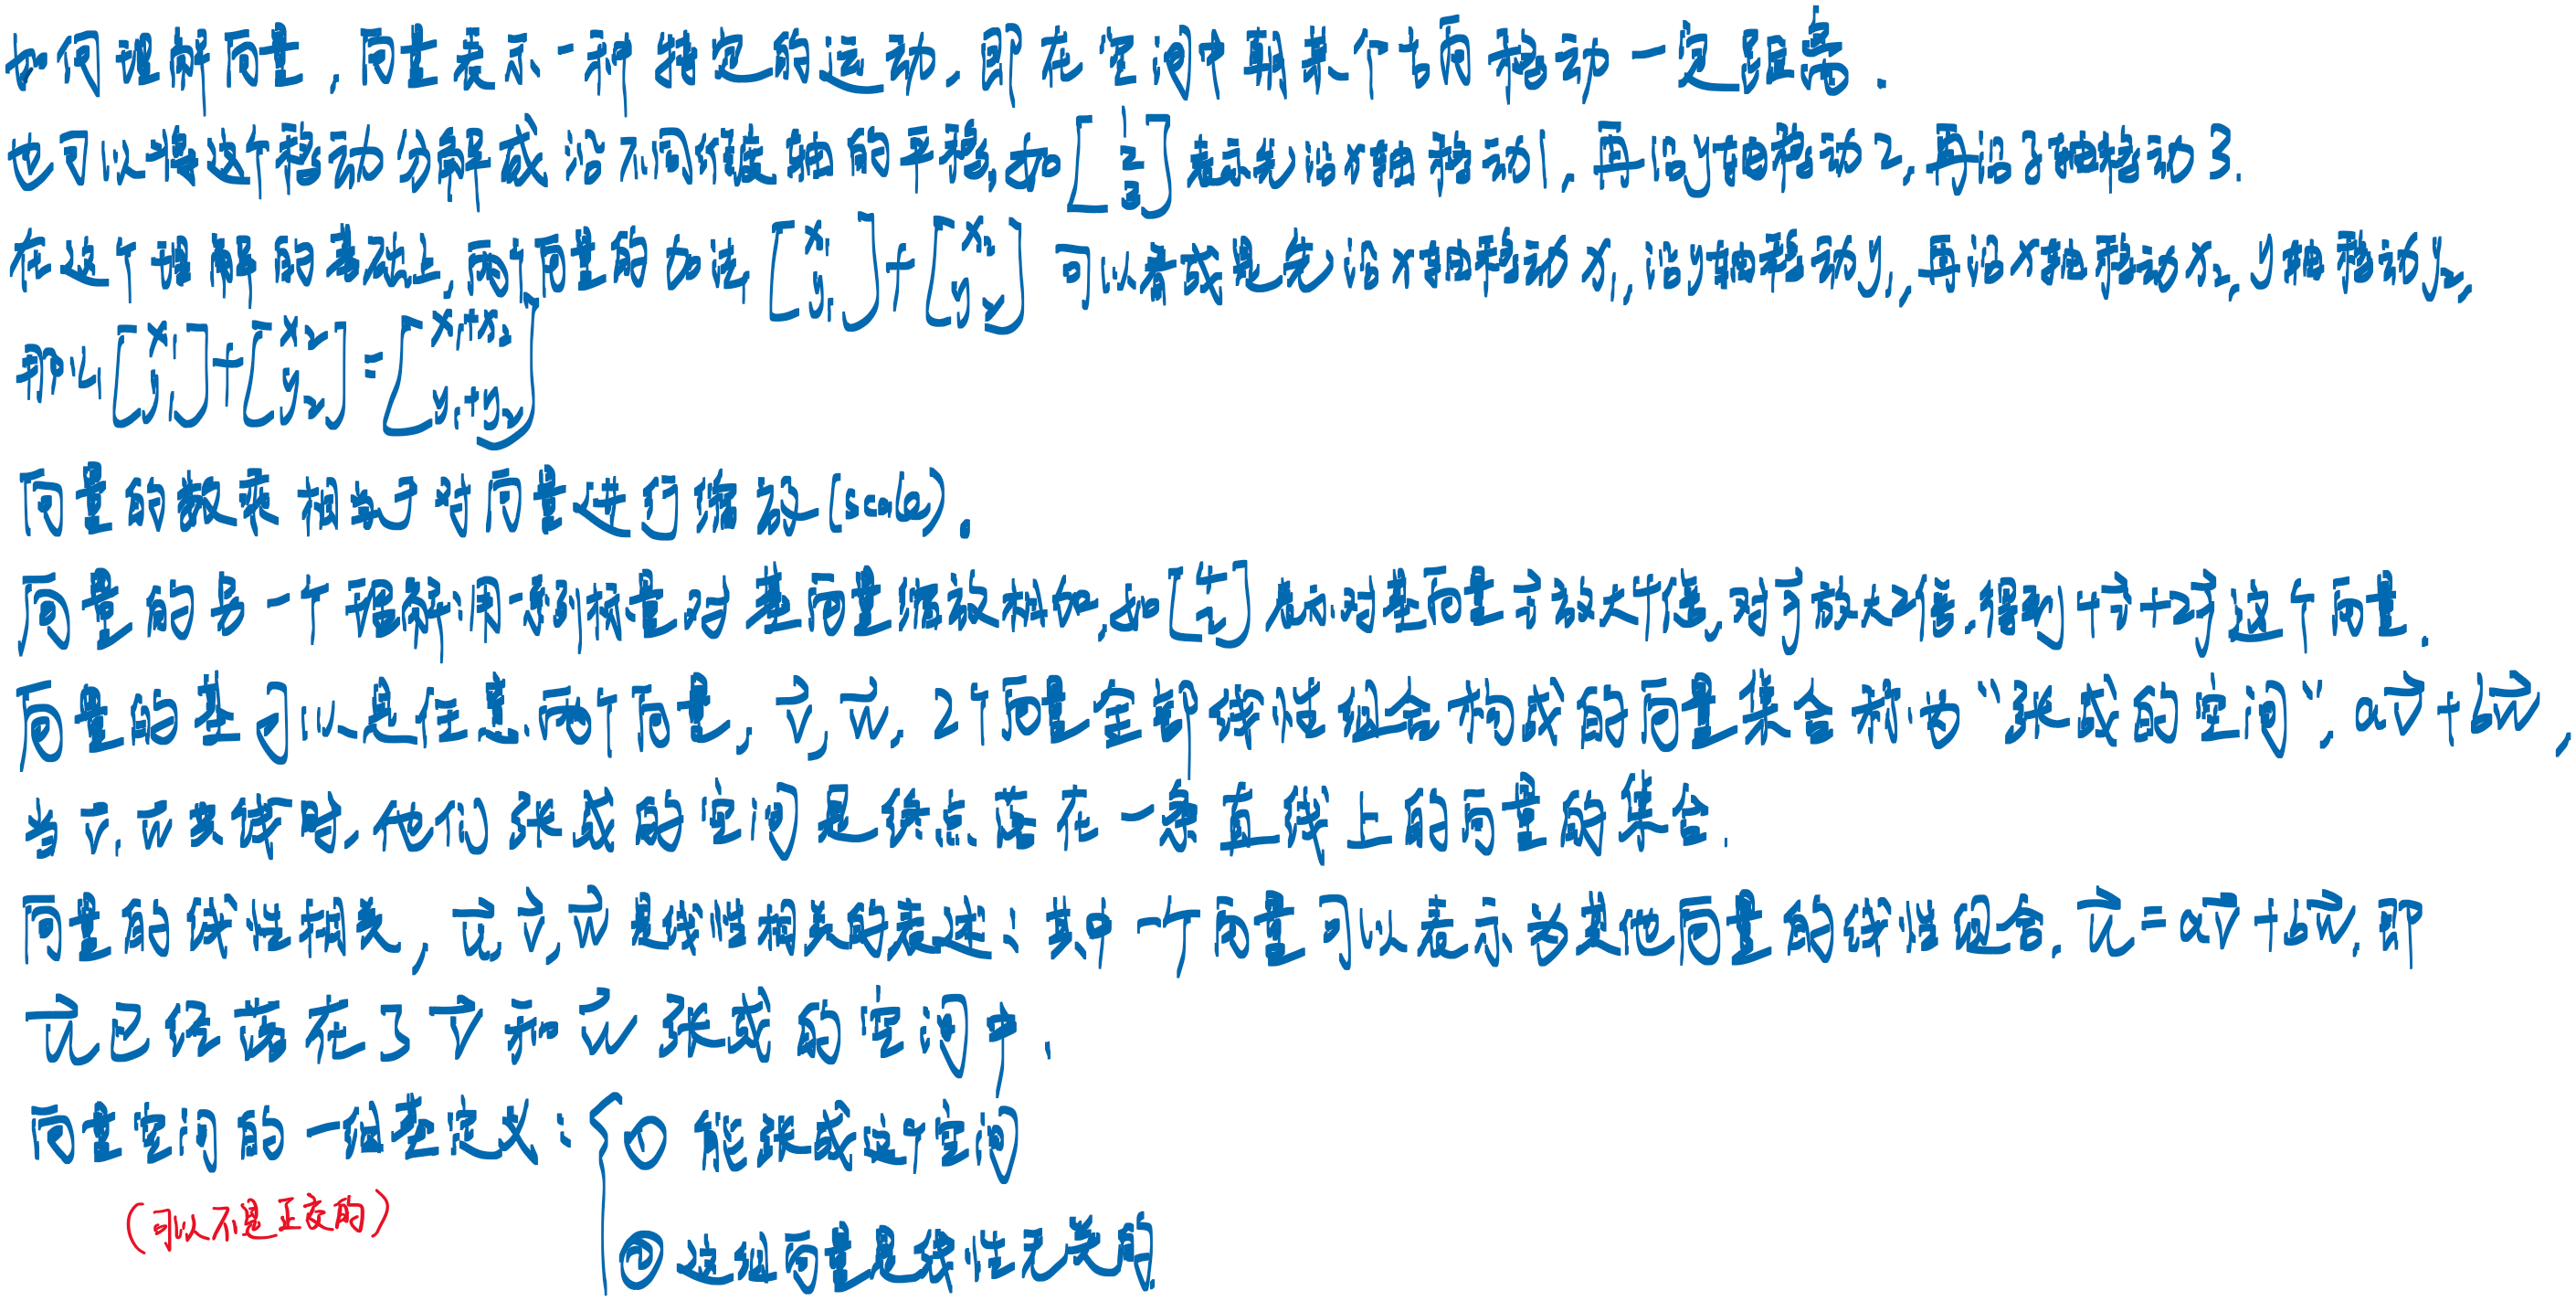 如何理解向量,向量表示一种特定的运动,即在空间中朝某个方向移动一定距离.
也可以将这个移动分解成沿不同维度轴的平移,如[1 2 3]表示先沿x轴移动1,再沿y轴移动2,再沿z轴移动3.
在这个理解的基础上,两个向量的加法[x₁ y₁]+[x₂ y₂]可以看成是先沿x轴移动x₁,沿y轴移动y₁,再沿x轴移动x₂,y轴移动y₂,
那么[x₁ y₁]+[x₂ y₂]=[x₁+x₂ y₁+y₂]
向量的数乘相当于对向量进行缩放(scale)。
向量的另一个理解:用一系列标量对基向量缩放相加,如[4 2]表示对基向量i⃗放大4倍,对j⃗放大2倍,得到4i⃗+2j⃗这个向量.
向量的基可以是任意两个向量,v⃗,w⃗,2个向量全部线性组合构成的向量集合称为“张成的空间”,av⃗+bw⃗,
当v⃗,w⃗共线时,他们张成的空间是终点落在一条直线上的向量的集合.
向量的线性相关,u⃗,v⃗,w⃗是线性相关的表述:其中一个向量可以表示为其他向量的线性组合.u⃗=av⃗+bw⃗,即
u⃗已经落在了v⃗和w⃗张成的空间中.
向量空间的一组基定义:{① 能张成这个空间
(可以不是正交的)
② 这组向量是线性无关的.